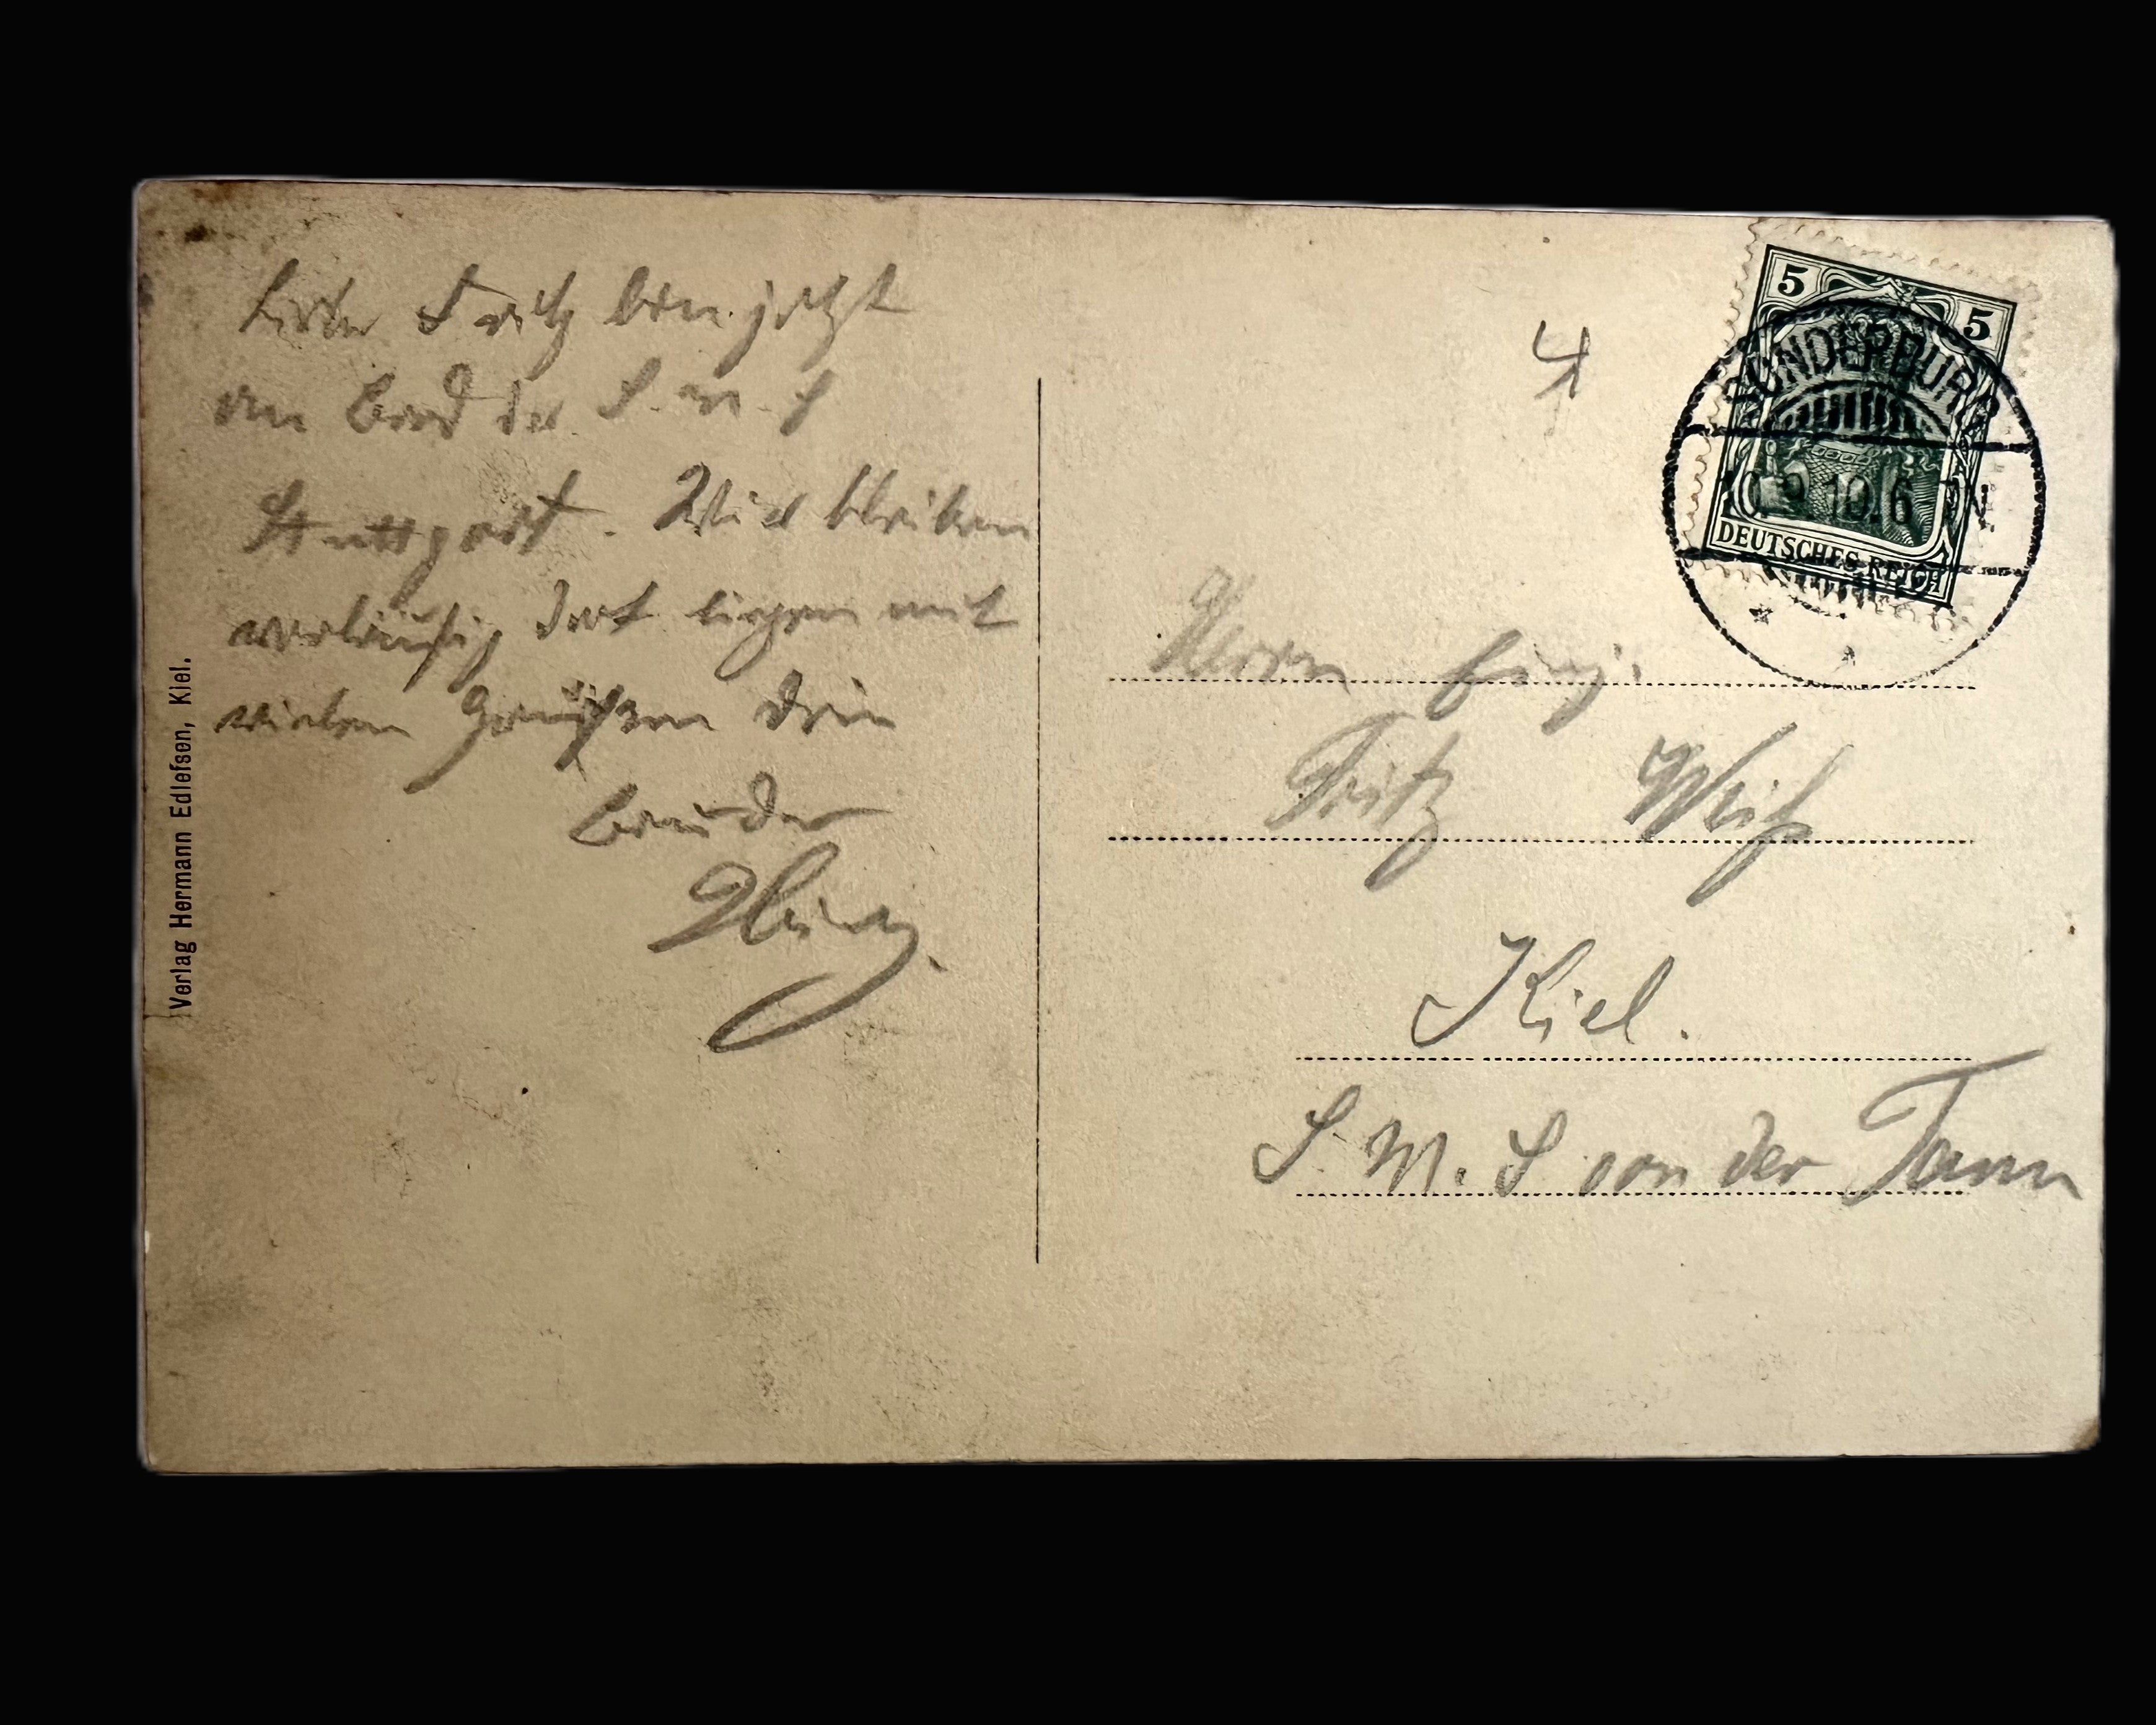 Lieber Fritz bin jetzt
an Bord der S. M. S
Stuttgart. Wir bleiben
vorläufig dort liegen mit
vielen Grüßen Dein
Bruder
Verlag Hermann Edlefsen, Kiel.
4
5 5
SONDERBURG
10.6 N
DEUTSCHES REICH
Herrn
Fritz Weiß
Kiel.
S. M. S von der Tann